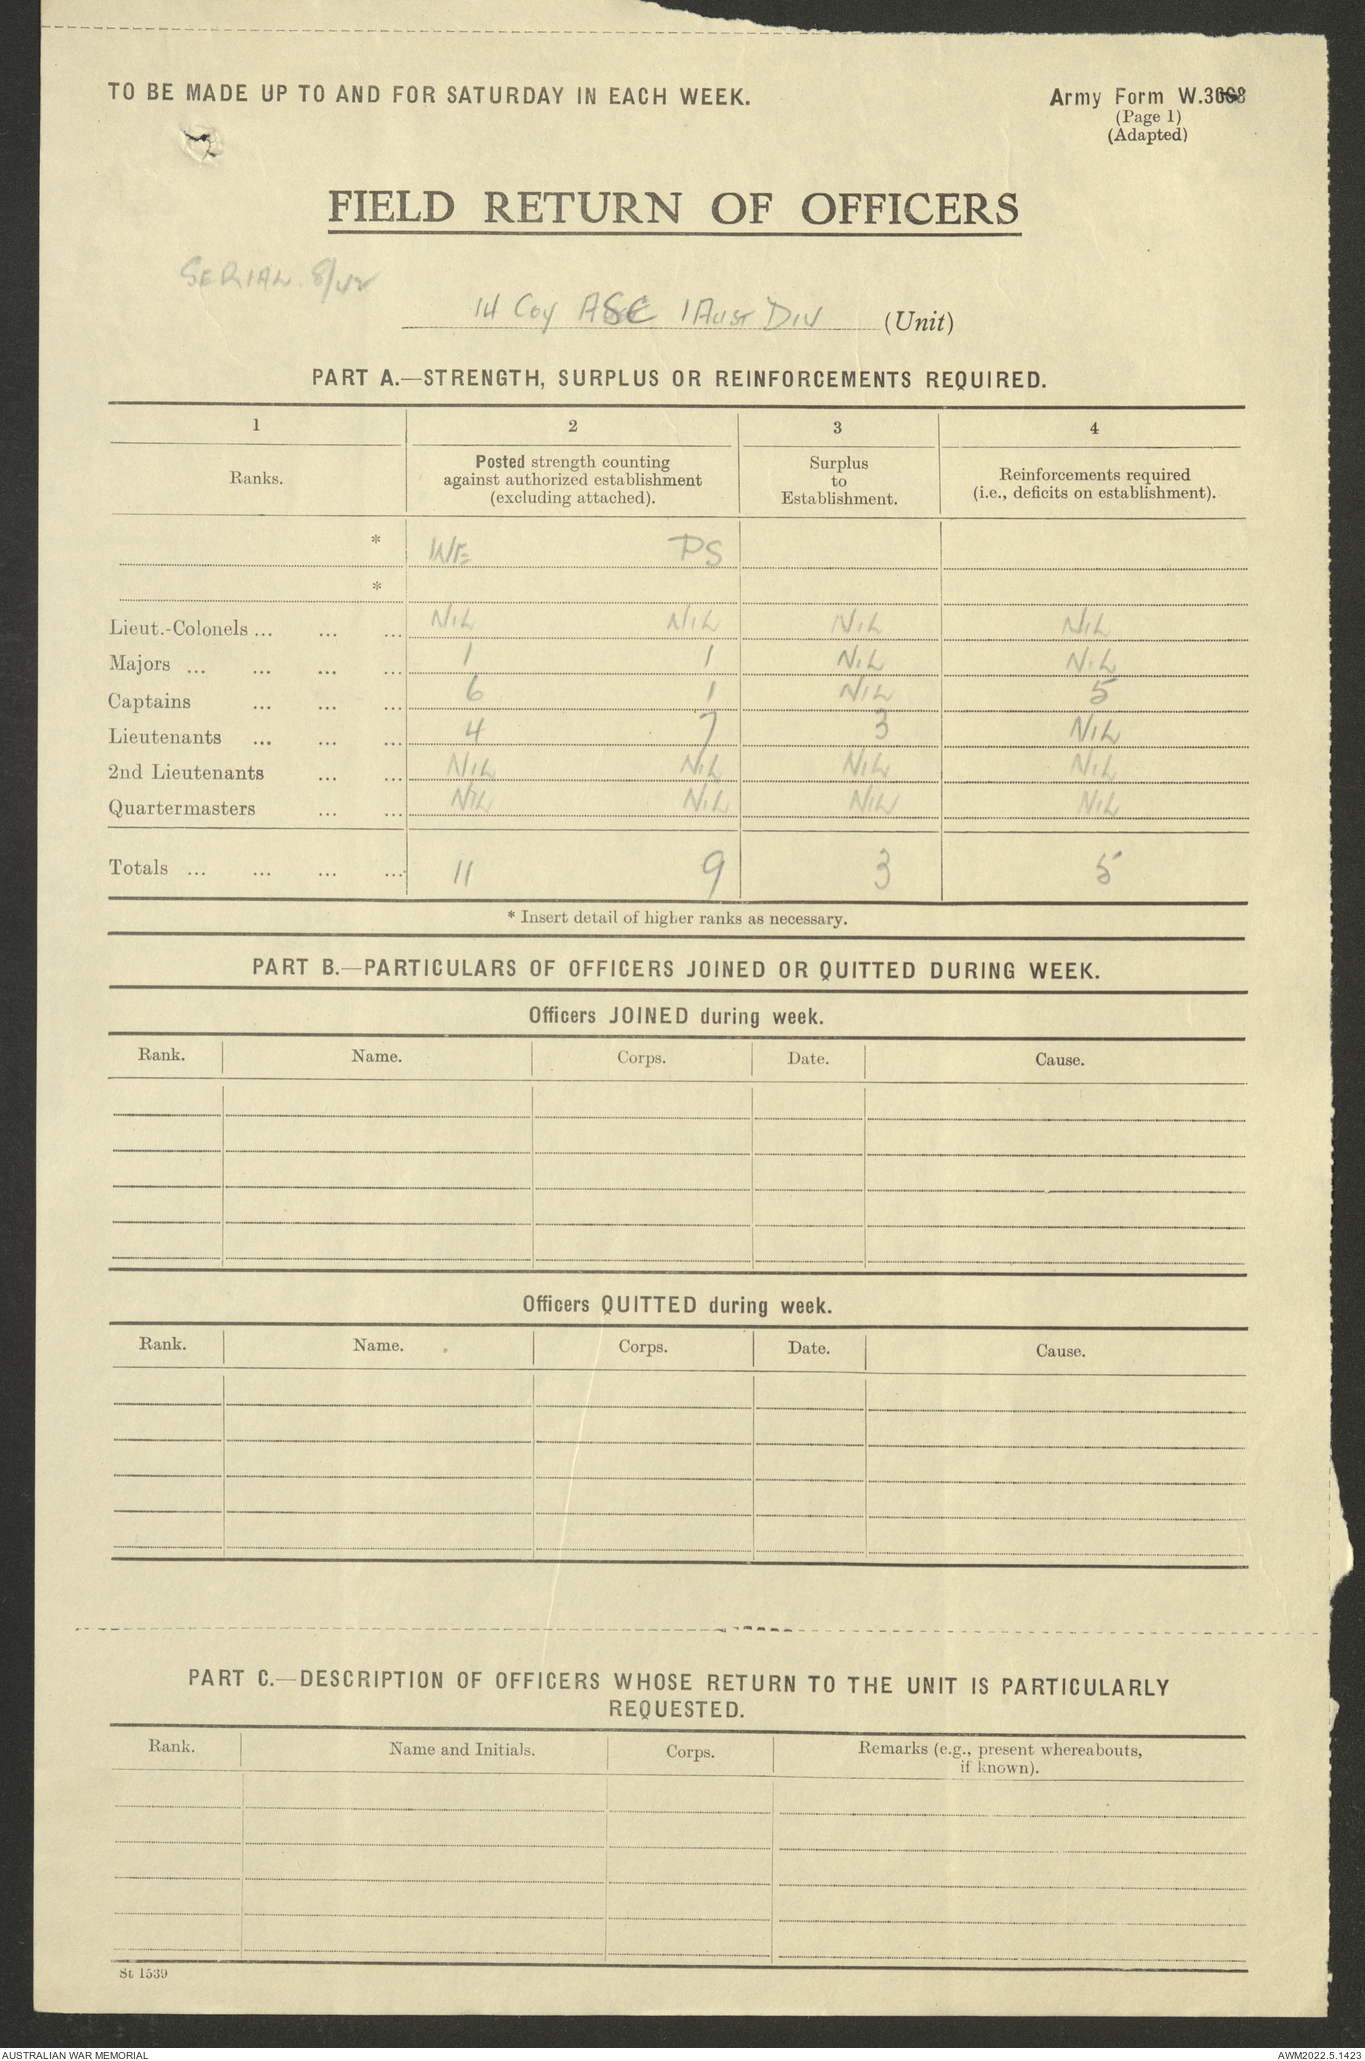 TO BE MADE UP TO AND FOR SATURDAY IN EACH WEEK.
Army Form W.3008
(Page 1)
(Adapted)
FIELD RETURN OF OFFICERS
SERIAL 8/42
14 Coy ASC 1 Aust Div (Unit)
PART A.—STRENGTH, SURPLUS OR REINFORCEMENTS REQUIRED.
1 2 3 4
Ranks. Posted strength counting against authorized establishment (excluding attached). Surplus to Establishment. Reinforcements required (i.e., deficits on establishment).
* WE PS
*
Lieut.-Colonels ... ... ... NIL NIL NIL NIL
Majors ... ... ... ... 1 1 NIL NIL
Captains ... ... ... 6 1 NIL 5
Lieutenants ... ... ... 4 7 3 NIL
2nd Lieutenants ... ... NIL NIL NIL NIL
Quartermasters ... ... NIL NIL NIL NIL
Totals ... ... ... ... 11 9 3 5
* Insert detail of higher ranks as necessary.
PART B.—PARTICULARS OF OFFICERS JOINED OR QUITTED DURING WEEK.
Officers JOINED during week.
Rank. Name. Corps. Date. Cause.
Officers QUITTED during week.
Rank. Name. Corps. Date. Cause.
PART C.—DESCRIPTION OF OFFICERS WHOSE RETURN TO THE UNIT IS PARTICULARLY
REQUESTED.
Rank. Name and Initials. Corps. Remarks (e.g., present whereabouts,
if known).
St 1539
AUSTRALIAN WAR MEMORIAL
AWM2022.5.1423